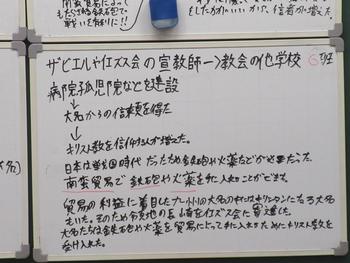 もたらす鉄砲で
戦いを有利に!!
信者が増えた。
ザビエルやイエズス会の宣教師→教会の他学校 6班
病院孤児院などを建設
↓
大名からの信頼を得た
↓
キリスト教を信仰する人が増えた。
日本は戦国時代だったため鉄砲や火薬などが必要だった。
南蛮貿易で鉄砲や火薬を手に入れることができる。
貿易の利益に着目した大名の中にはキリシタンになる大名
もいた。そのため領地の長崎をイエズス会に寄進した。
大名たちは鉄砲や火薬を貿易によって手に入れるためにキリスト教を
受け入れた。